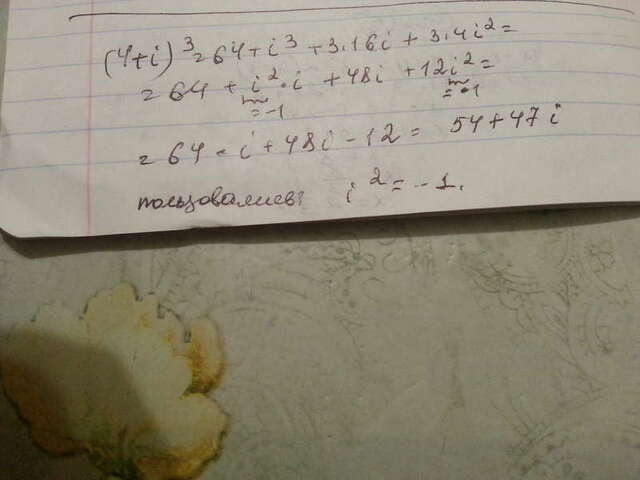 (4+i)³ = 64 + i³ + 3·16i + 3·4i² =
= 64 + i²·i + 48i + 12i² =
= -1 = -1
= 64 - i + 48i - 12 = 54 + 47i
пользовались: i² = -1.